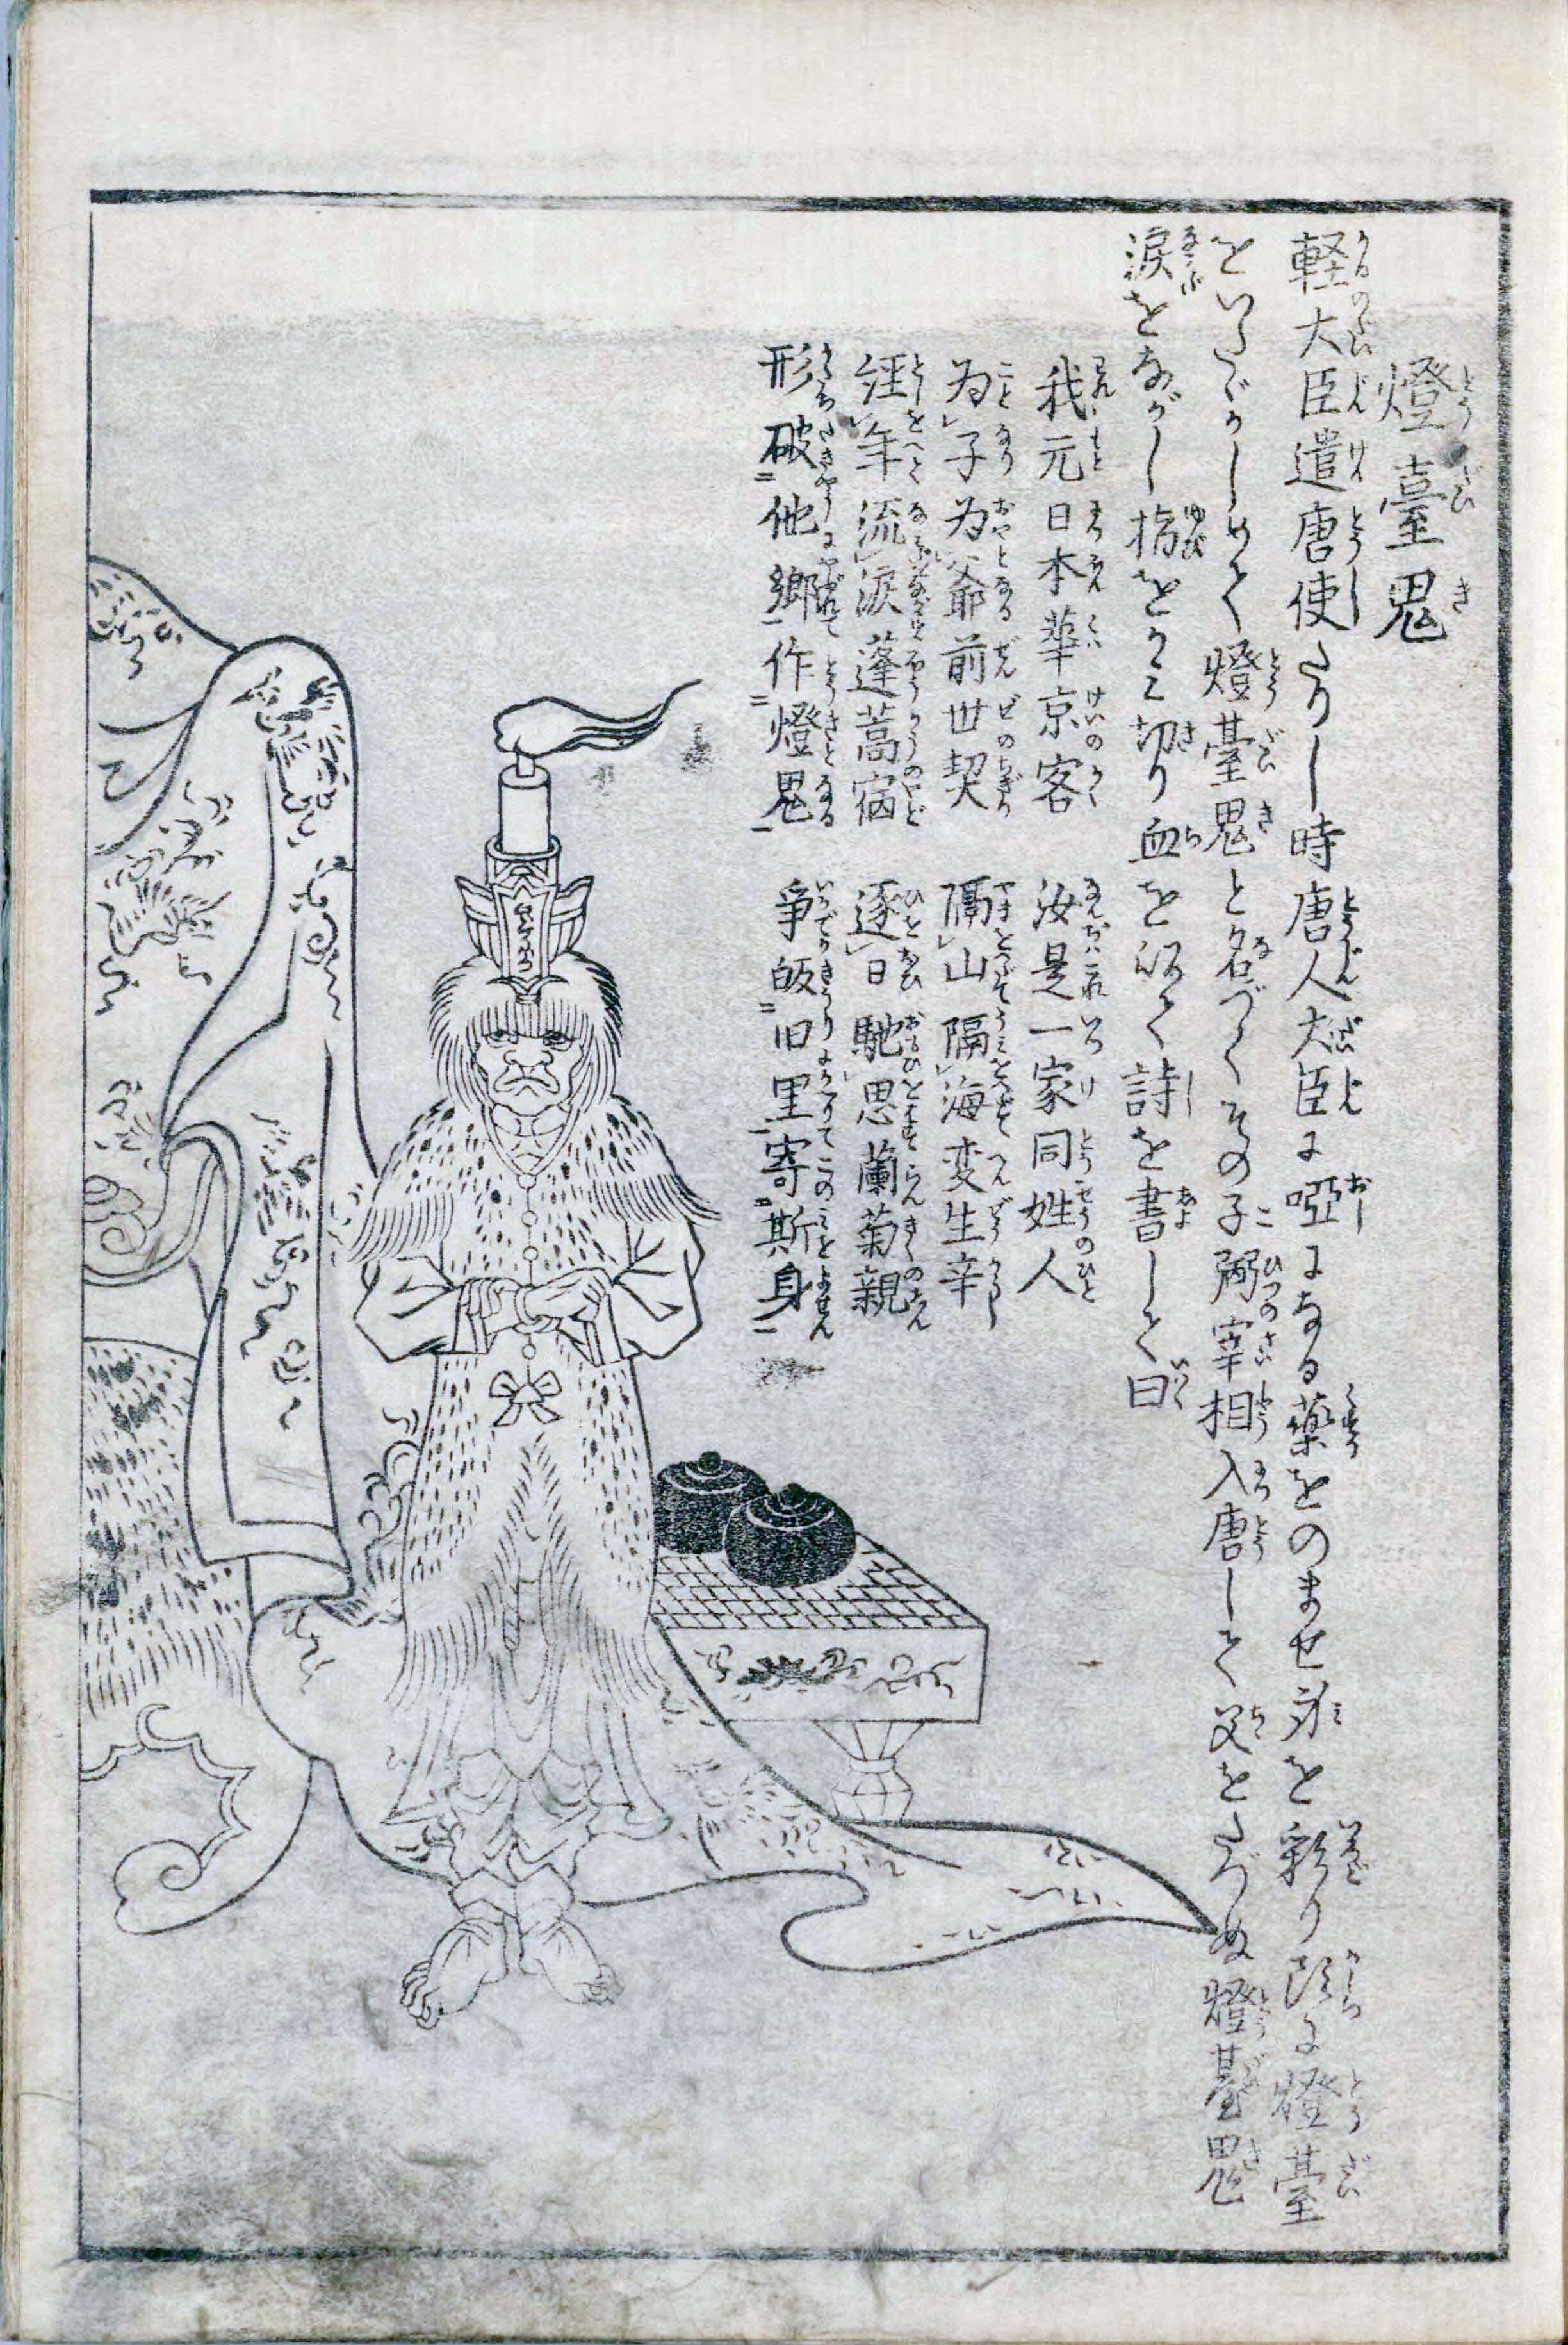 燈臺鬼
軽大臣遣唐使たりし時唐人大臣に啞になる薬をのませ身を彩り頭に燈臺
をいたゞかしめて燈臺鬼と名づくその子弼宰相入唐して父をたづぬ燈臺鬼
涙をながし指をかみ切り血を以て詩を書して曰
我元日本華京客 汝是一家同姓人
為子為爺前世契 隔山隔海変生辛
経年流涙蓬蒿宿 逐日馳思蘭菊親
形破他郷作燈鬼 争皈旧里寄斯身